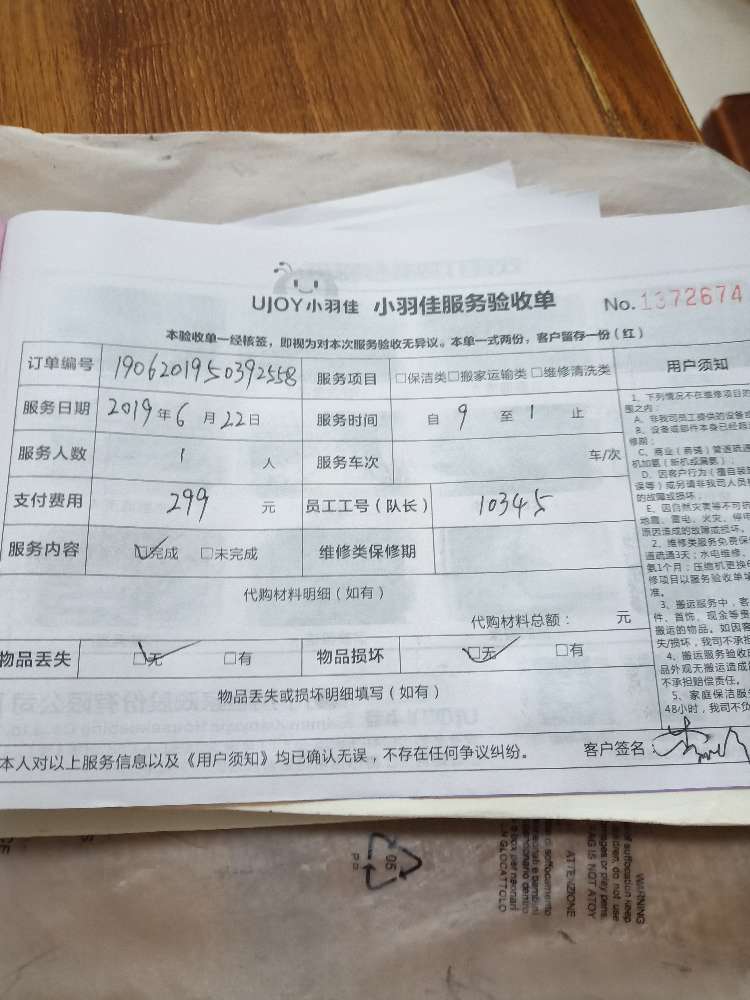 UJOY小羽佳 小羽佳服务验收单 No.1372674
本验收单一经核签，即视为对本次服务验收无异议。本单一式两份，客户留存一份（红）
订单编号 1906201950392558 服务项目 □保洁类□搬家运输类□维修清洗类 用户须知
服务日期 2019年6月22日 服务时间 自9至1止
服务人数 1人 服务车次 车/次
支付费用 299元 员工工号（队长） 10345
服务内容 ☑完成 □未完成 维修类保修期
代购材料明细（如有）
代购材料总额： 元
物品丢失 ☑无 □有 物品损坏 ☑无 □有
物品丢失或损坏明细填写（如有）
本人对以上服务信息以及《用户须知》均已确认无误，不存在任何争议纠纷。 客户签名：
1、下列情况不在维修项目
围之内：
A、非我司员工提供的设备
B、设备或部件本身已经超
修期；
C、商业（易锈）管道疏通
机加氨（新机或漏氨）；
D、因客户行为（擅自装
误等）或另请非我司人员
的故障或损坏；
E、因自然灾害等不可
地震、雷电、火灾、停
原因造成的故障或损坏。
2、维修类服务免费保
道疏通3天；水电维修、
氨1个月；压缩机更换
修项目以服务验收单
准。
3、搬运服务中，客
件、首饰、现金等贵
搬运的物品。如因客
失/损坏，我司不承担
4、搬运服务验收
品外观无搬运造成
不承担赔偿责任。
5、家庭保洁服
48小时，我司不负
05
WARNING
ATTENZIONE